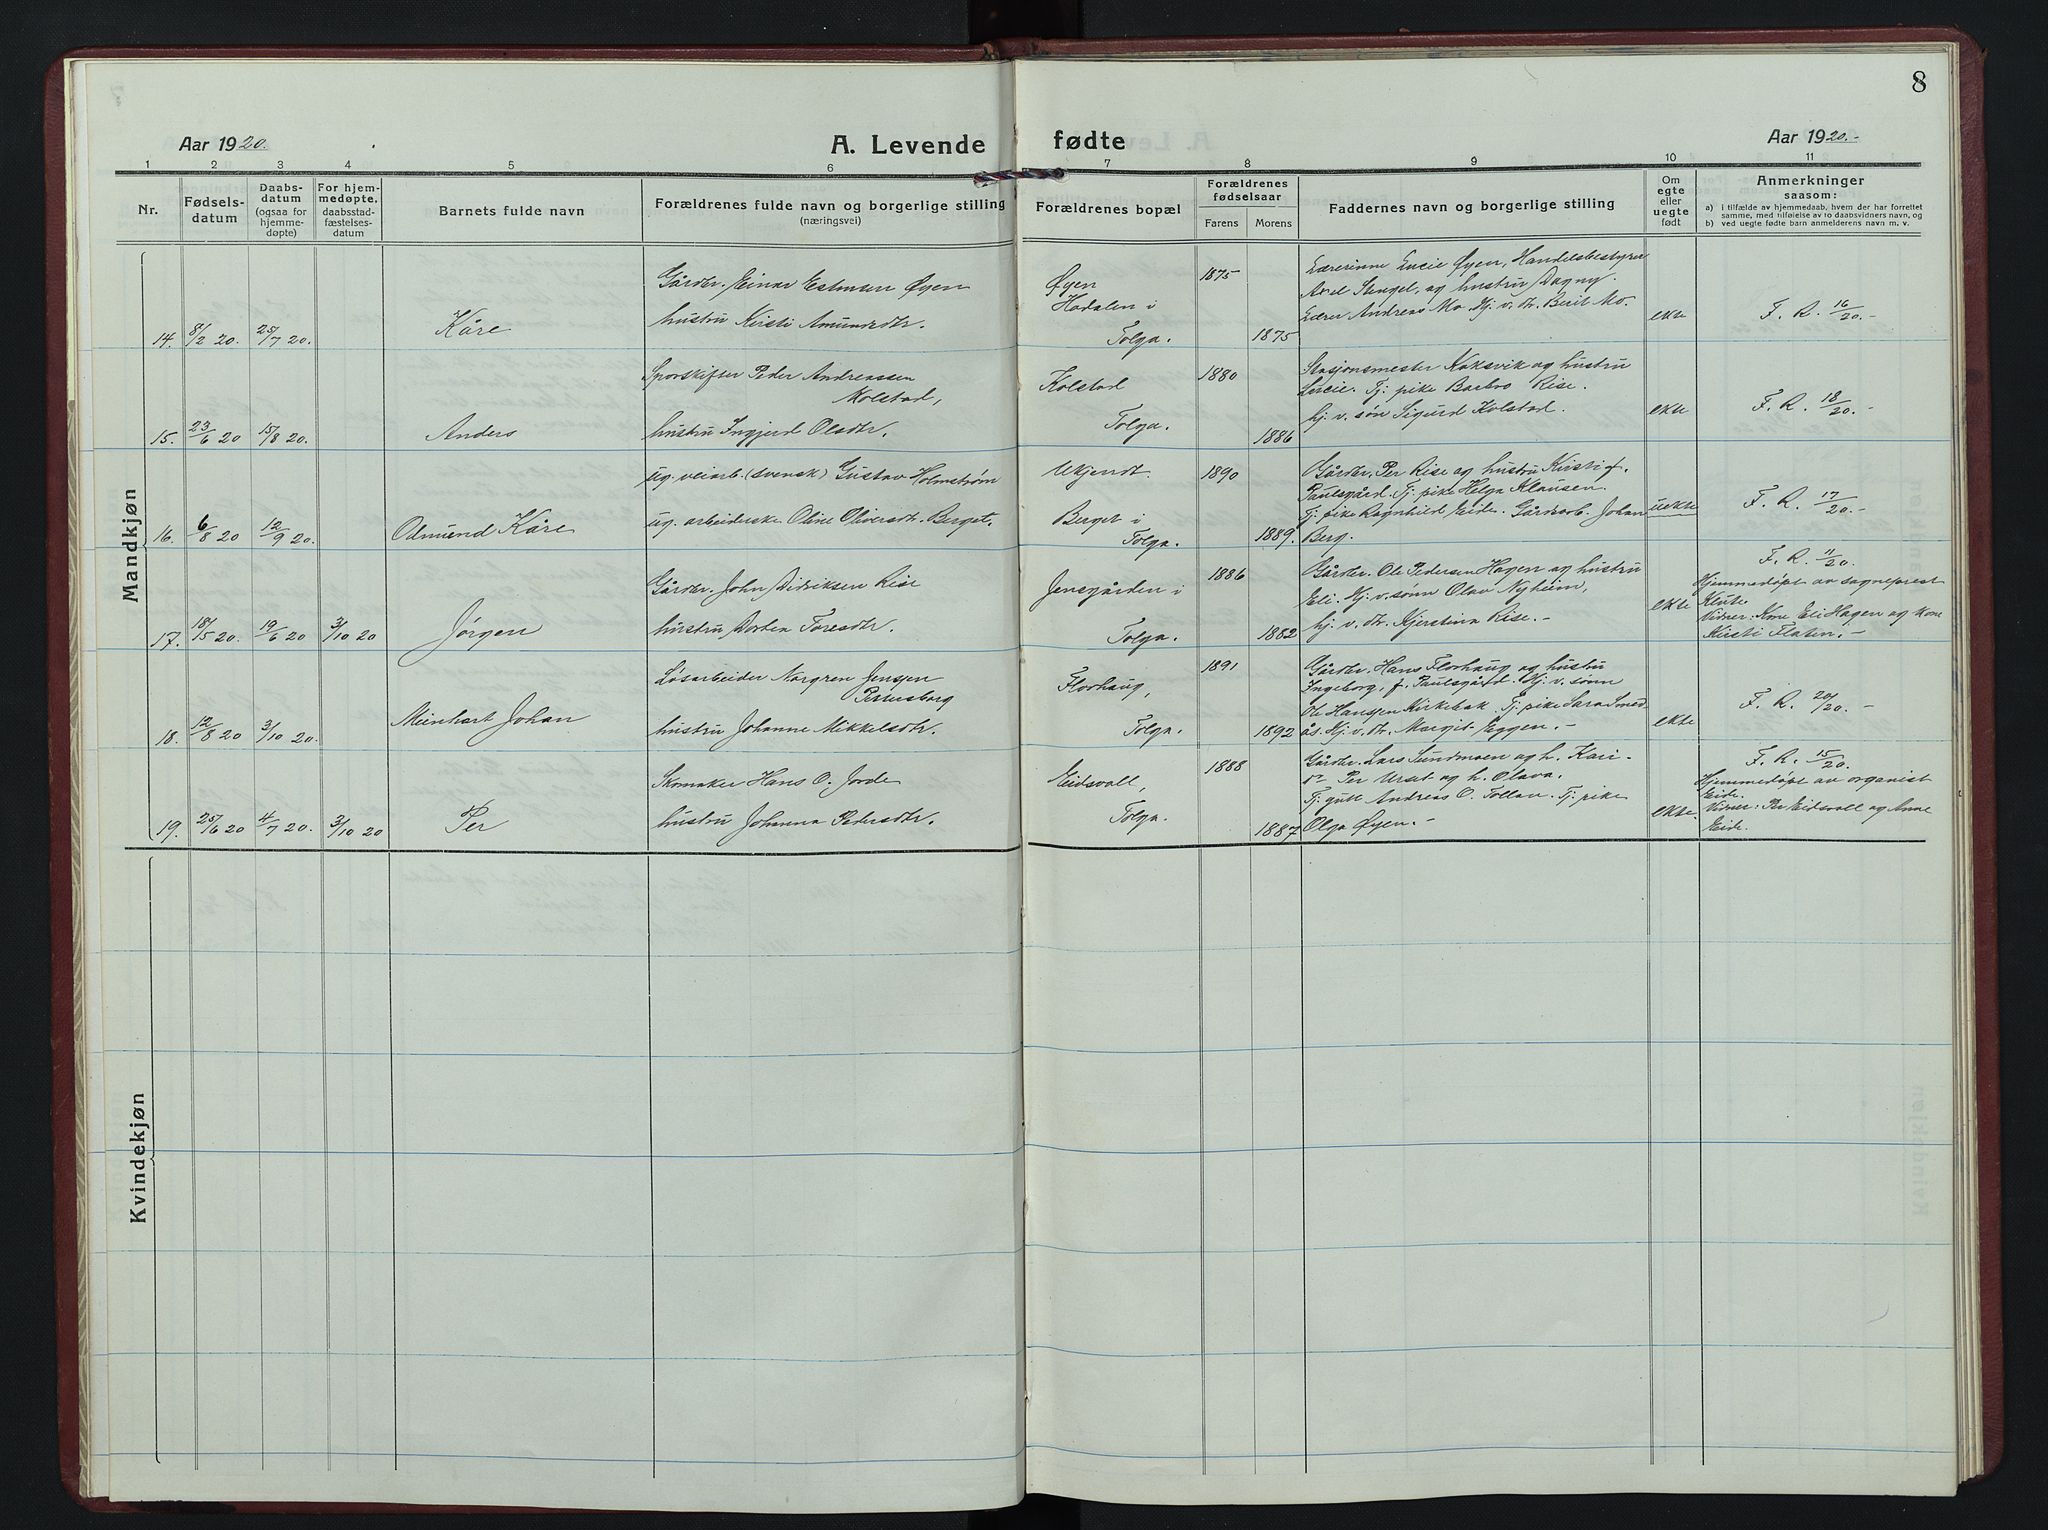 8
Aar 1920.
A. Levende
fødte
Aar 1920.-
1 2 3 4 5 6 7 8 9 10 11
Nr.
Fødsels-
datum
Daabs-
datum
(ogsaa for
hjemme-
døpte)
For hjem-
medøpte,
daabsstad-
fæstelses-
datum
Barnets fulde navn
Forældrenes fulde navn og borgerlige stilling
(næringsvei)
Forældrenes bopæl
Forældrenes
fødselsaar
Farens Morens
Faddernes navn og borgerlige stilling
Om
egte
eller
uegte
født
Anmerkninger
saasom:
a) i tilfælde av hjemmedaab, hvem der har forrettet
samme, med tilføielse av to daabsvidners navn, og
b) ved uegte fødte barn anmelderens navn m. v.
Mandkjøn
14. 8/2 20. 25/7 20. Kåre
Gårdbr. Einar Estensen Øyen
hustru Kirsti Amundsdtr.
Øyen
Hodalen i
Tolga.
1875
1875
Lærerinne Lucie Øyen, Handelsbestyrer
Axel Stengel, og hustru Dagny.
Lærer Andreas Mo. Hj. v. dr. Berit Mo.
ekte
F. R. 16/20. -
15. 23/6 20 15/8 20. Anders
Sporskifter Peder Andreassen
Kolstad,
hustru Ingjerd Olsdtr.
Kolstad
Tolga.
1880
1886
Stasjonsmester Koksvik og hustru
Lucie. Tj. pike Barbro Rise.
hj. v. søn Sigurd Kolstad.
ekte
F. R. 18/20. -
16. 6/8 20 12/9 20. Odmund Kåre
ug. veiarb. (svensk) Gustav Holmstrøm
ug. arbeiderske Oline Oliversdtr. Berget.
Ukjendt.
Berget i
Tolga.
1890
1889.
Gårdbr. Per Rise og hustru Kirsti f.
Paulsgård. Tj. pike Helga Klausen.
Tj. pike Ragnhild Eide. Gårdsarb. Johan
Berg.
uekte
F. R. 17/20. -
17. 18/15 20. 19/6 20 3/10 20 Jørgen
Gårdbr. John Didriksen Rise
hustru Dorten Toresdtr.
Jensgården i
Tolga.
1886
1882
Gårdbr. Ole Pedersen Hagen og hustru
Eli. Hj. v. sønn Olav Nyheim,
hj. v. dr. Kjerstina Rise. -
ekte
F. R. 11/20.
Hjemmedøpt av sogneprest
Klüte.
Vidner: Kone Eli Hagen og kone
Kirsti Flaten. -
18. 12/8 20 3/10 20. Meinhart Johan
Løsarbeider Norgren Jenssen
Petersborg
hustru Johanne Mikkelsdtr.
Florhaug,
Tolga.
1891
1892
Gårdbr. Hans Florhaug og hustru
Ingeborg, f. Paulsgård. Hj. v. sønn
Ole Hanssen Kirkebak. Tj. pike Sara Smed
ås. Hj. v. dr. Margit Eggen. -
ekte
F. R. 20/20. -
19. 25/6 20 4/7 20. 3/10 20 Per
Skomaker Hans O. Jorde
hustru Johanna Pedersdtr.
Eidsvoll,
Tolga.
1888
1887
Gårdbr. Lars Sundmoen og h. Kari -
do Per Urset og h. Olava.
Tj. gutt Andreas O. Tollan. Tj. pike
Olga Øyen. -
ekte.
F. R. 15/20.
Hjemmedøpt av organist
Eide.
Vidner: Per Eidsvoll og Anne
Eide.
Kvindekjøn